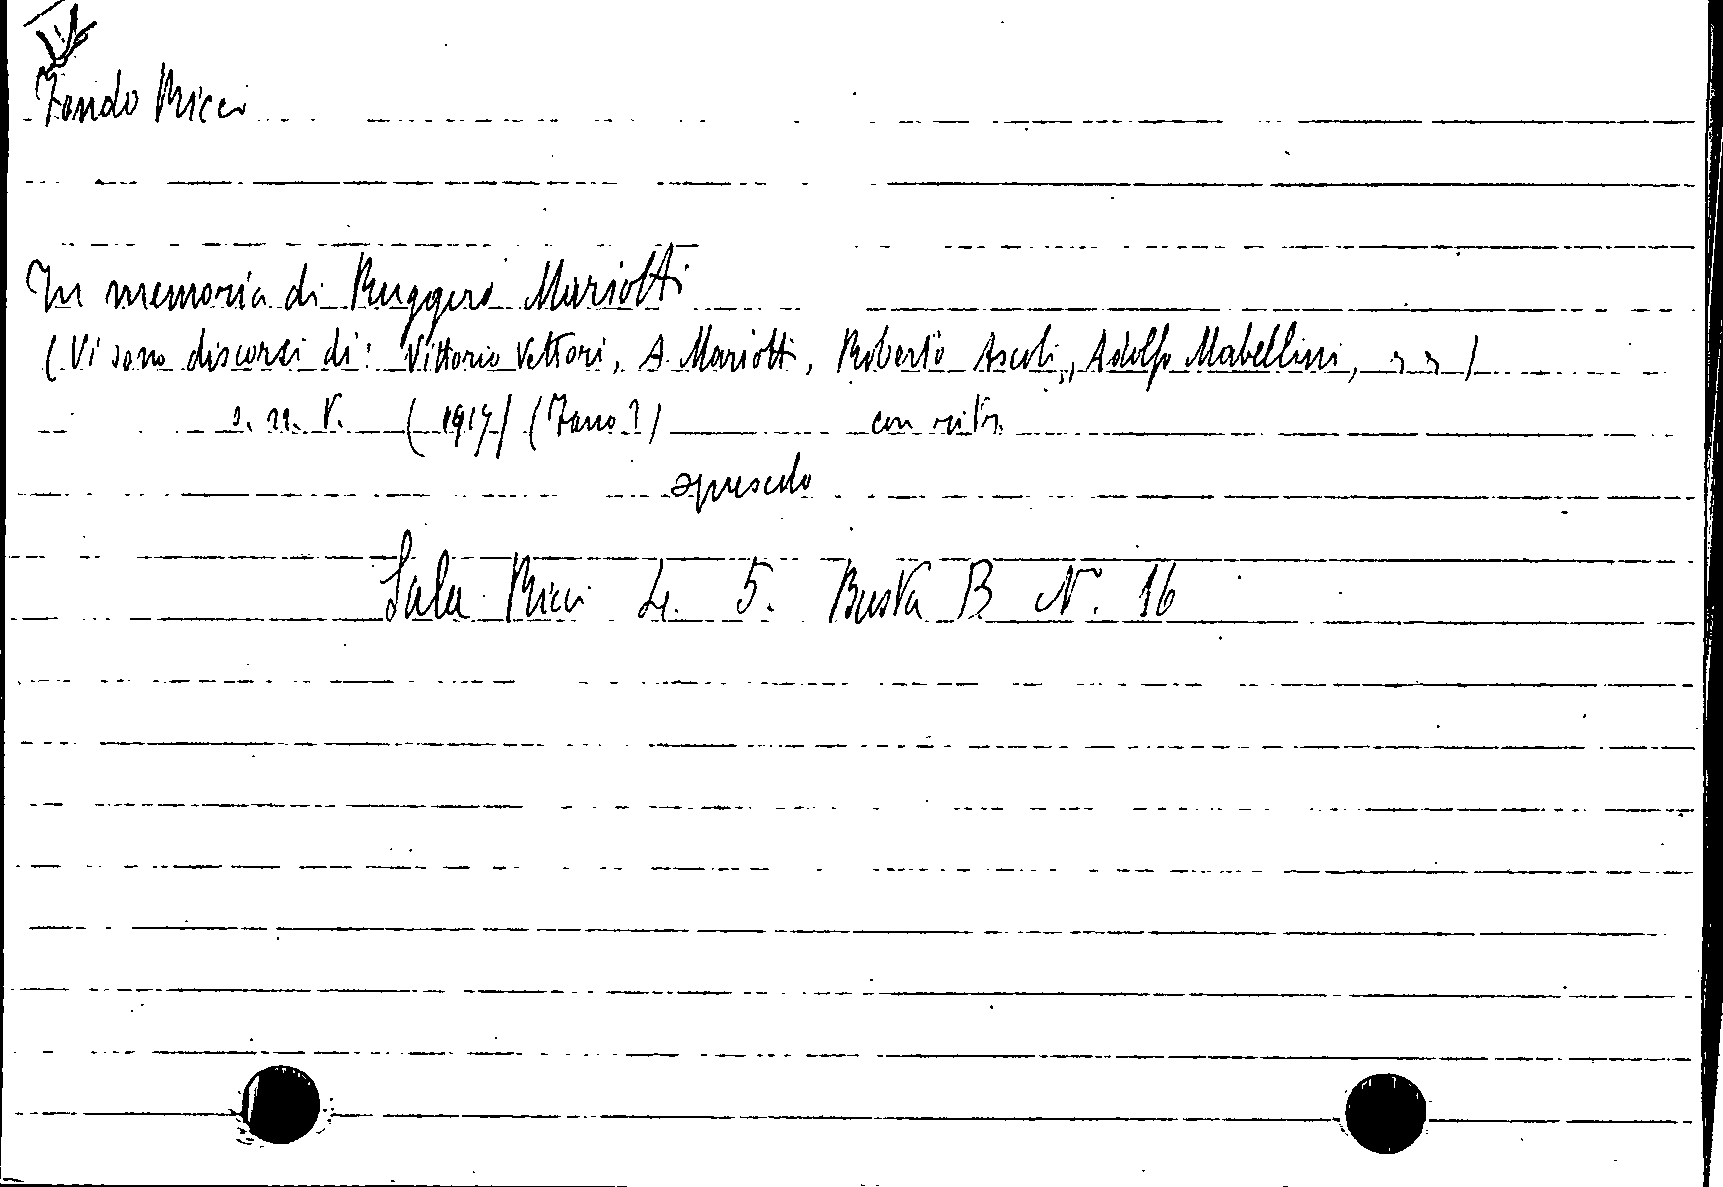 Fondo Ricci
In memoria di Ruggero Mariotti
(Vi sono discorsi di: Vittorio Vettori, A. Mariotti, Roberto Ascoli, Adolfo Mabellini, )
s. n. t. (1917) (Fano?) con ritr.
opuscolo
Sala Ricci L. 5. Busta B N. 16